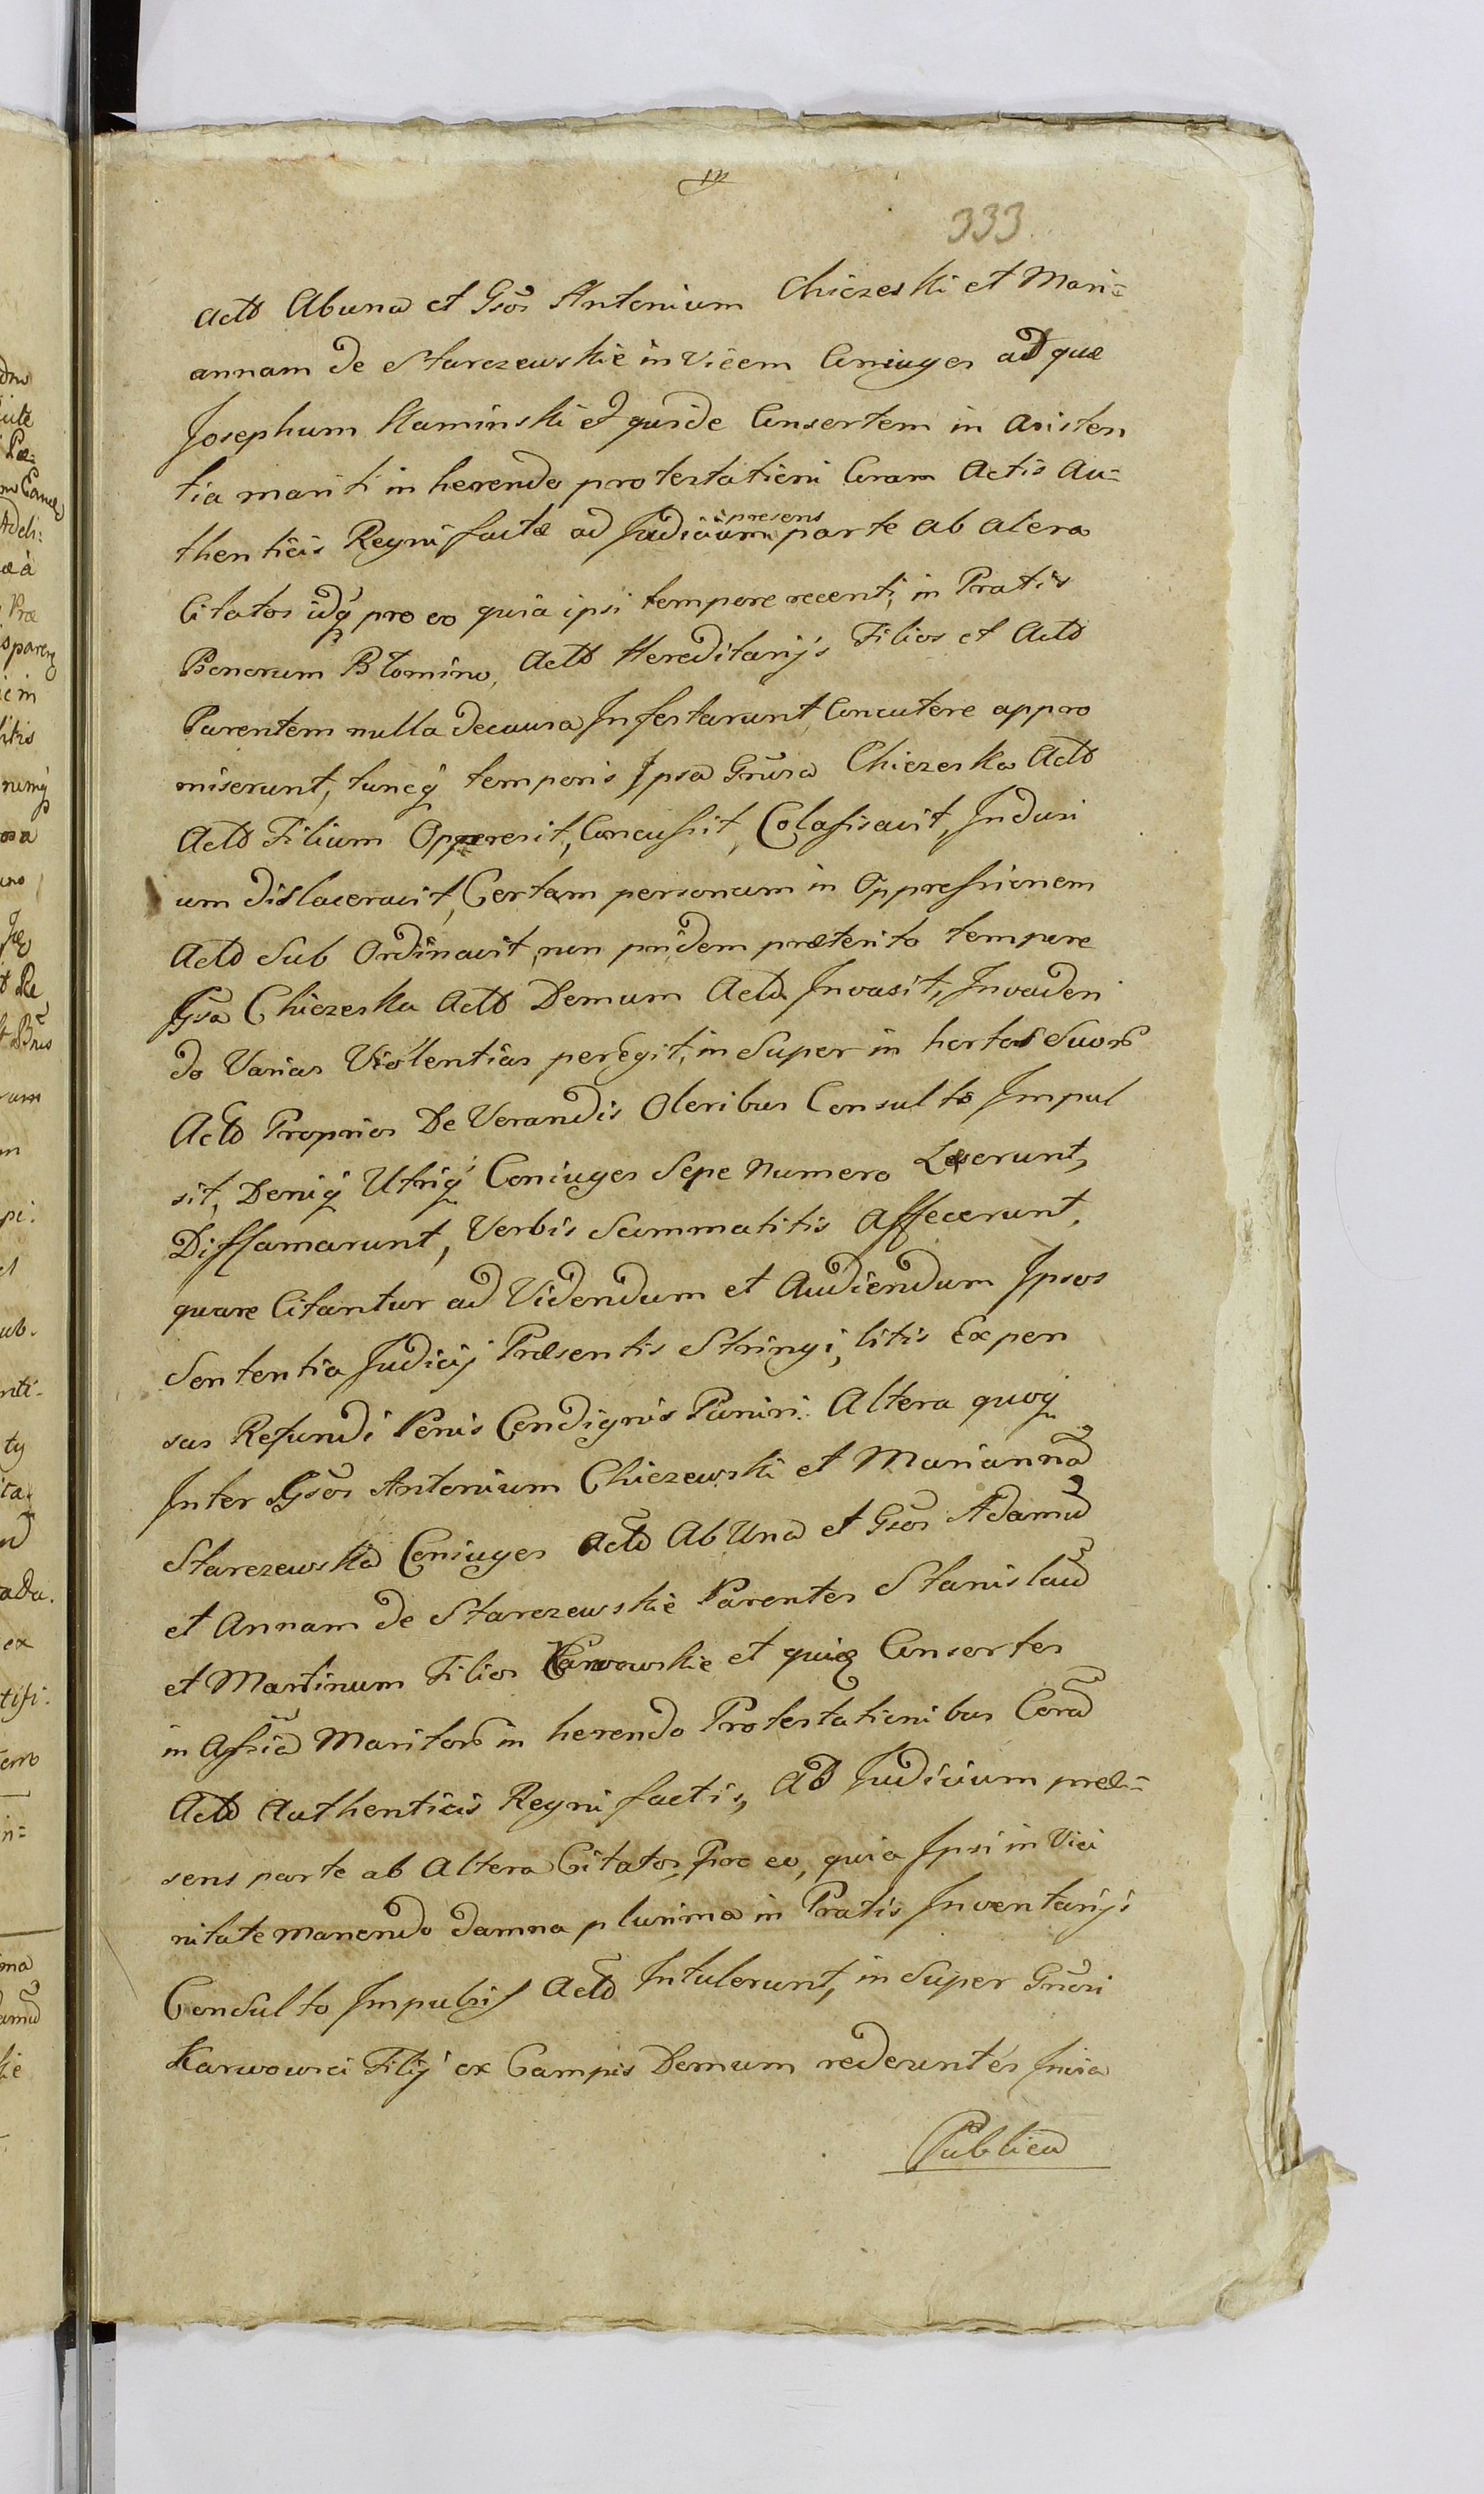 333
Actō Abuna et Gsōs Antonium Chiczeski et Mari=
annam de Starczewskie in Vicem Coniuges ad quæ
Josephum Kaminski et quide Consortem in asisten
tia mariti in herendo protestationi Coram Actis Au=
thenticis Regni factæ ad Judicium presens parte ab alera
Citatos idq pro eo quia ipsi tempore recenti, in Pratis
Bonorum Btomino, Actō Hereditarijs Filios et Actō
Parentem nulla decausa Infestarunt Concutere appro
miserunt, tuncq temporis Ipsa Gnūsa Chiczeska Actō
Actō Filium Oppresit, Concussit, Colafisavit, Indusi
um dislaceravit, Certam personam in Oppressionem
Actō Sub Ordinavit, non pridem præterito tempore
Gsa Chiczeska Actō Domum Actō Invasit, Invaden
do Varias Violentias peregit, in Super in hortos Suos
Actō Proprios De Vorandis Oleribus Consulto Impul
sit, Deniq Utriq Coniuges Sepe numero Leserunt,
Diffamarunt, Verbis Scummatitis affecerunt,
quare Citantur ad Videndum et Audiendum Ipsos
Sententia Judicij Præsentis Stringi, litis Expen
sas Refundi Penis Condignis Puniri. Altera quoq
Inter Gsōs Antonium Chiczewski et Mariannā
Starczewska Coniuges Actō Ab Una et Gsōs Adamū
et Annam de Starczewskie Parentes Stanislaū
et Martinum Filios Karwowskie et quiq Consortes
in Assiā Maritorō in herendo Protestationibus Corā
Actō Authenticis Regni factis, ad Judicium præ=
sens parte ab Altera Citatos, Pro eo, quia Ipsi in Vici
nitate manendo damna plurima in Pratis Inventarijs
Consulto Impulsis Actō Intulerunt, in Super Gnōsi
Karwowsci Filij ex Campis Domum redeuntes Invia
Publica